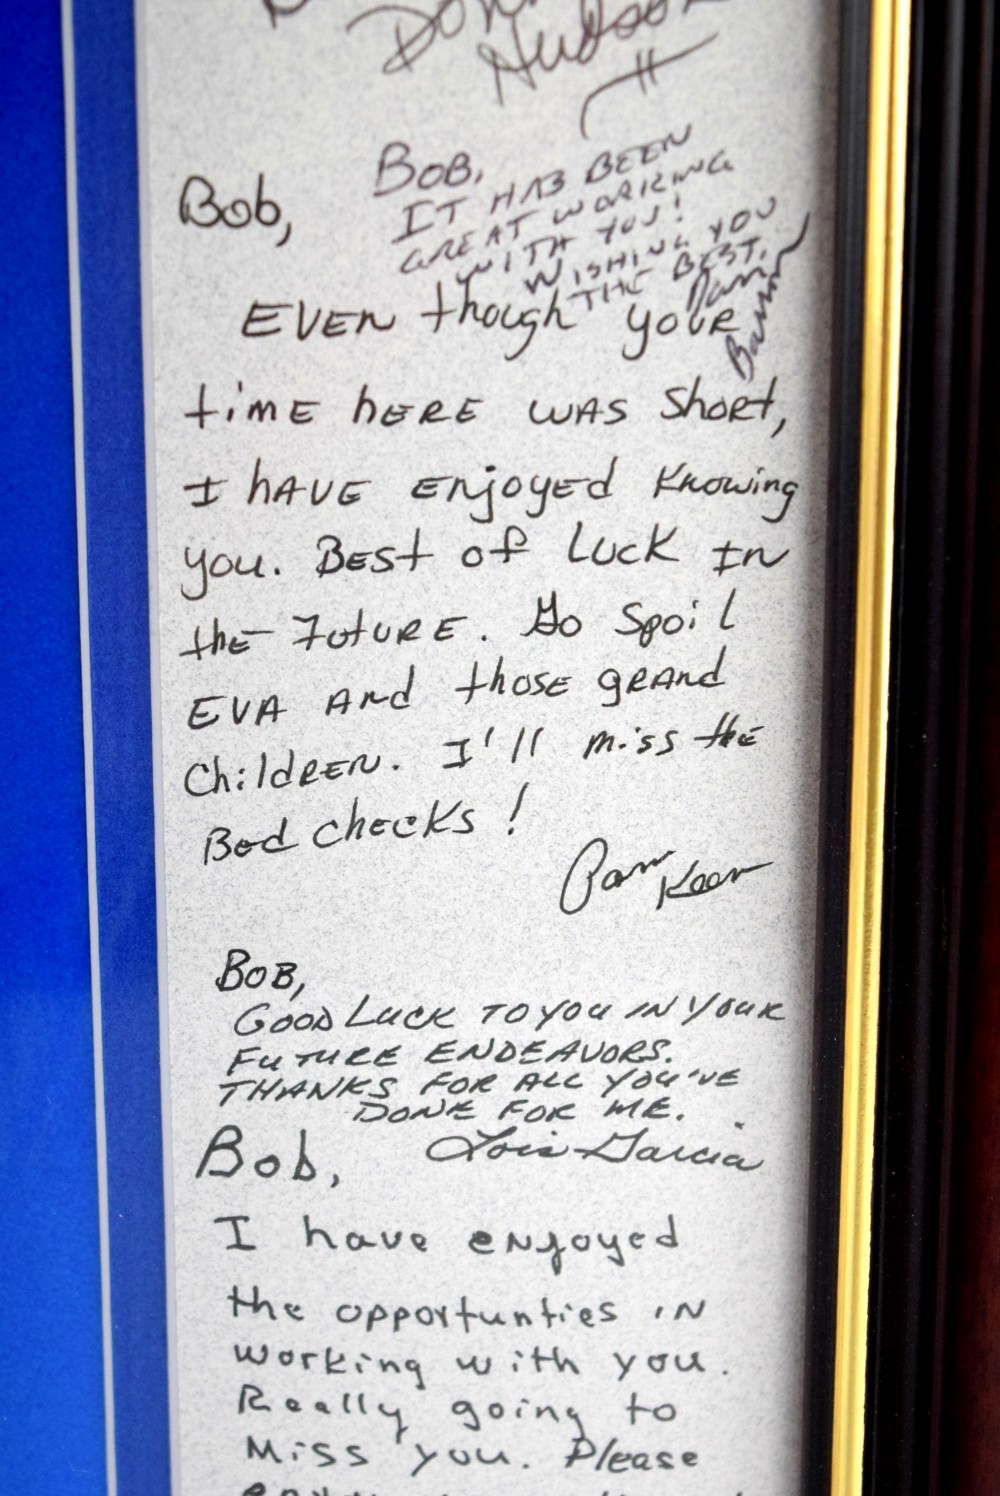 Hudson
BOB,
IT HAS BEEN
GREAT WORKING
WITH YOU!
WISHING YOU
THE BEST.
Bob,
EVEN though your
time hERE WAS Short,
I hAVE Enjoyed Knowing
you. BEst of Luck IN
the FutuRE. Go Spoil
EVA And those gRANd
ChildREN. I'll miss the
Bed checks!
Pam
BOB,
GOOD LUCK TO YOU IN YOUR
FUTURE ENDEAVORS.
THANKS FOR ALL YOU'VE
DONE FOR ME.
Lois Garcia
Bob,
I have enjoyed
the opportunties in
working with you.
Really going to
Miss you. Please